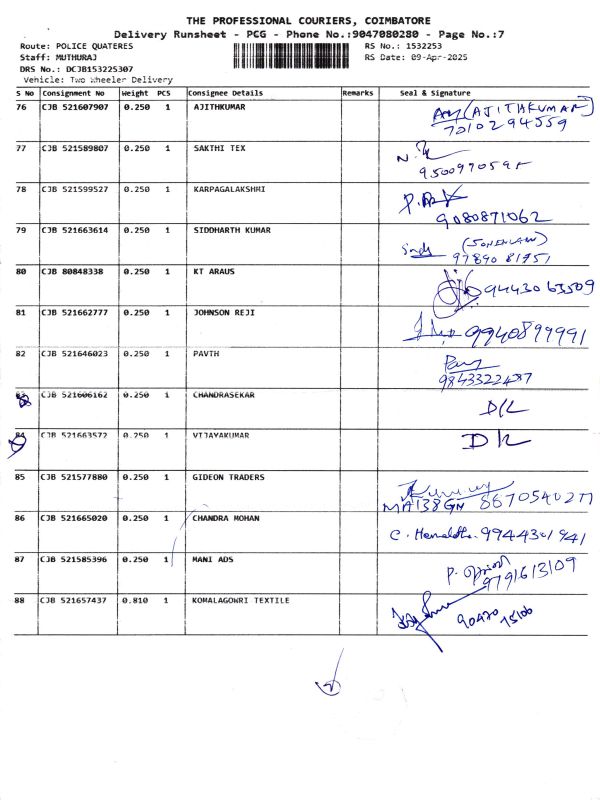 THE PROFESSIONAL COURIERS, COIMBATORE
Delivery Runsheet - PCG - Phone No.:9047080280 - Page No.:7
Route: POLICE QUATERES RS No.: 1532253
Staff: MUTHURAJ RS Date: 09-Apr-2025
DRS No.: DCJB153225307
Vehicle: Two Wheeler Delivery
S No Consignment No Weight PCS Consignee Details Remarks Seal & Signature
76 CJB 521607907 0.250 1 AJITHKUMAR (AJITHKUMAR)
7010294559
77 CJB 521589807 0.250 1 SAKTHI TEX
78 CJB 521599527 0.250 1 KARPAGALAKSHMI
9080871062
79 CJB 521663614 0.250 1 SIDDHARTH KUMAR
97890 81951
80 CJB 80848338 0.250 1 KT ARAUS 9443063509
81 CJB 521662777 0.250 1 JOHNSON REJI 9940899991
82 CJB 521646023 0.250 1 PAVTH
9843322487
83 CJB 521606162 0.250 1 CHANDRASEKAR D/L
84 CJB 521663572 0.250 1 VIJAYAKUMAR D/L
85 CJB 521577880 0.250 1 GIDEON TRADERS
8670540277
86 CJB 521665020 0.250 1 CHANDRA MOHAN C. Hemalatha. 9944301941
87 CJB 521585396 0.250 1 MANI ADS
9791613109
88 CJB 521657437 0.810 1 KOMALAGOWRI TEXTILE
90470 75100